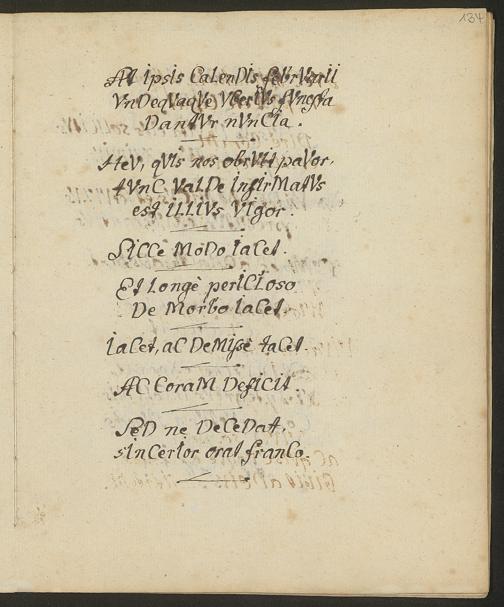 134
At ipsis CaLenDIs febrVarII
VnDeqVaqVe VberIVs fVnesta
DantVr nVnCIa.
HeV, qVIs nos obrVIt paVor,
tVnC VaLDe InfirMatVs
est ILLIVs VIgor.
SICCè MoDo IaCet.
Et Longè perICLoso
De Morbo IaCet.
IaCet, aC DeMIsse taCet.
AC CoraM DefICIt.
SeD ne DeCeDat,
sInCerIor orat franCo.